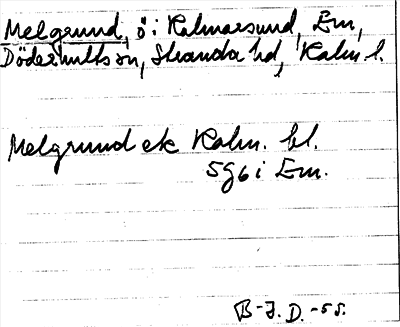 Melgrund, ö i Kalmarsund, Em,
Döderhults sn, Stranda hd, Kalm l.
Melgrund ek Kalm. bl.
5g6i Em.
B-J. D. -55.